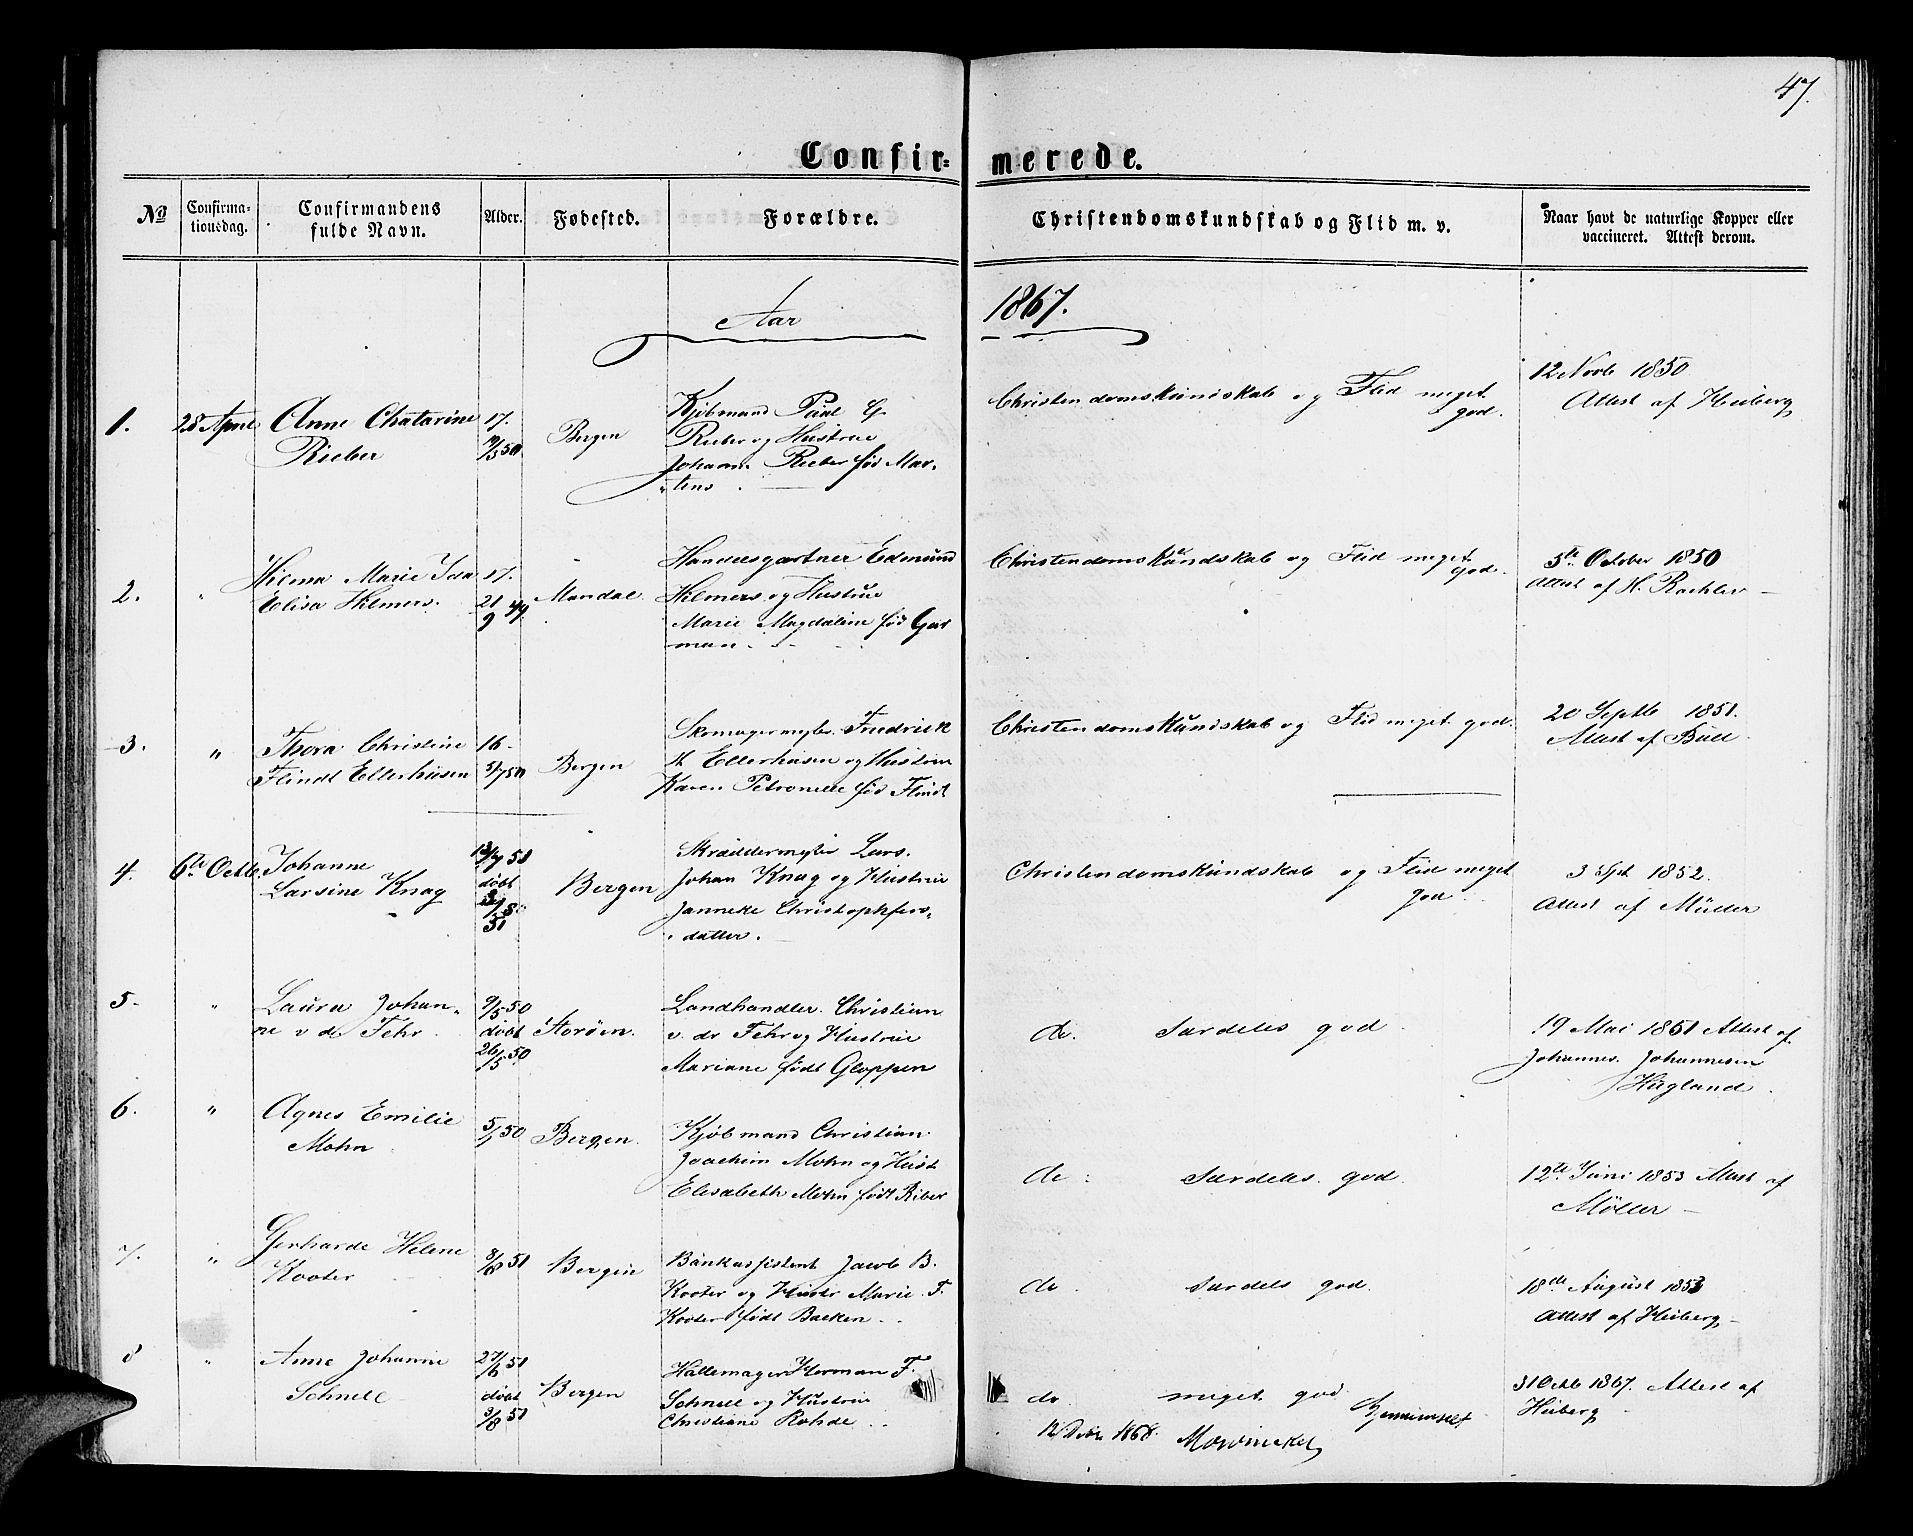 47.
Confir= merede.
No
Confirma-
tionsdag.
Confirmandens
fulde Navn.
Alder.
Fødested.
Forældre.
Christendomskundskab og Flid m. v.
Naar havt de naturlige Kopper eller
vaccineret. Attest derom.
Aar 1867.
1.
28 April
Anne Chatarine
Rieber
17.
Bergen
Kjøbmand Paul G.
Rieber og Hustrue
Johanne Rieber fød Mar-
tens
Christendomskundskab og Flid meget
god.
12 Novb 1850
Attest af Heiberg
2.
"
Hilma Marie Ida
Elisa Hilmers.
17.
21/9 49.
Mandal
Handelsgartner Edmund
Hilmers og Hustrue
Marie Magdalene fød Gar
man
Christendomskundskab og Flid meget
god.
5te October 1850
Attest af H. Rachlev
3.
"
Thora Christine
Flindt Ellerhusen
16
5/7 50
Bergen
Skomagermester Fredrick
H Ellerhusen og Hustrue
Karen Petronelle fød Flindt
Christendomskundskab og Flid meget god.
20 Septb 1851.
Attest af Bull
4.
6te Octb.
Johanne
Larsine Knag
13/7 51
døbt
3/8
51
Bergen
Skræddermester Lars
Johan Knag og Hustrue
Janneke Christophfers-
datter.
Christendomskundskab og Flid meget
god.
3 Spt 1852.
Attest af Müller
5.
"
Laura Johan-
ne v d. Fehr
9/5 50
døbt
26/5 50
Storøen.
Landhandler Christian
v. dr Fehr og Hustrue
Mariane født Gloppen
do.
Særdeles god.
19 Mai 1851 Attest af
Johannes Johannesen
Hugland
6.
"
Agnes Emilie
Mohn
5/1 50
Bergen.
Kjøbmand Christian
Joachim Mohn og Hust
Elisabeth Mohn født Riber
do:
Særdeles god.
12te Juni 1853 Attest af
Möller
7.
"
Gerharde Helene
Kooter
8/8 51
Bergen
Bankassistent Jacob B.
Kooter og Hustr Marie F.
Kooter født Backen
do.
Særdels god.
18de August 1853
Attest af Heiberg
8
"
Anne Johanne
Schnell
27/6 51
døbt
3/8 51
Bergen
Hattemager Herman F.
Schnell og Hustrue
Christiane Rohde
do.
meget god
31 Octb 1867. Attest af
Heiberg
Gjennemseet
12/ 1868.
Mowinckel